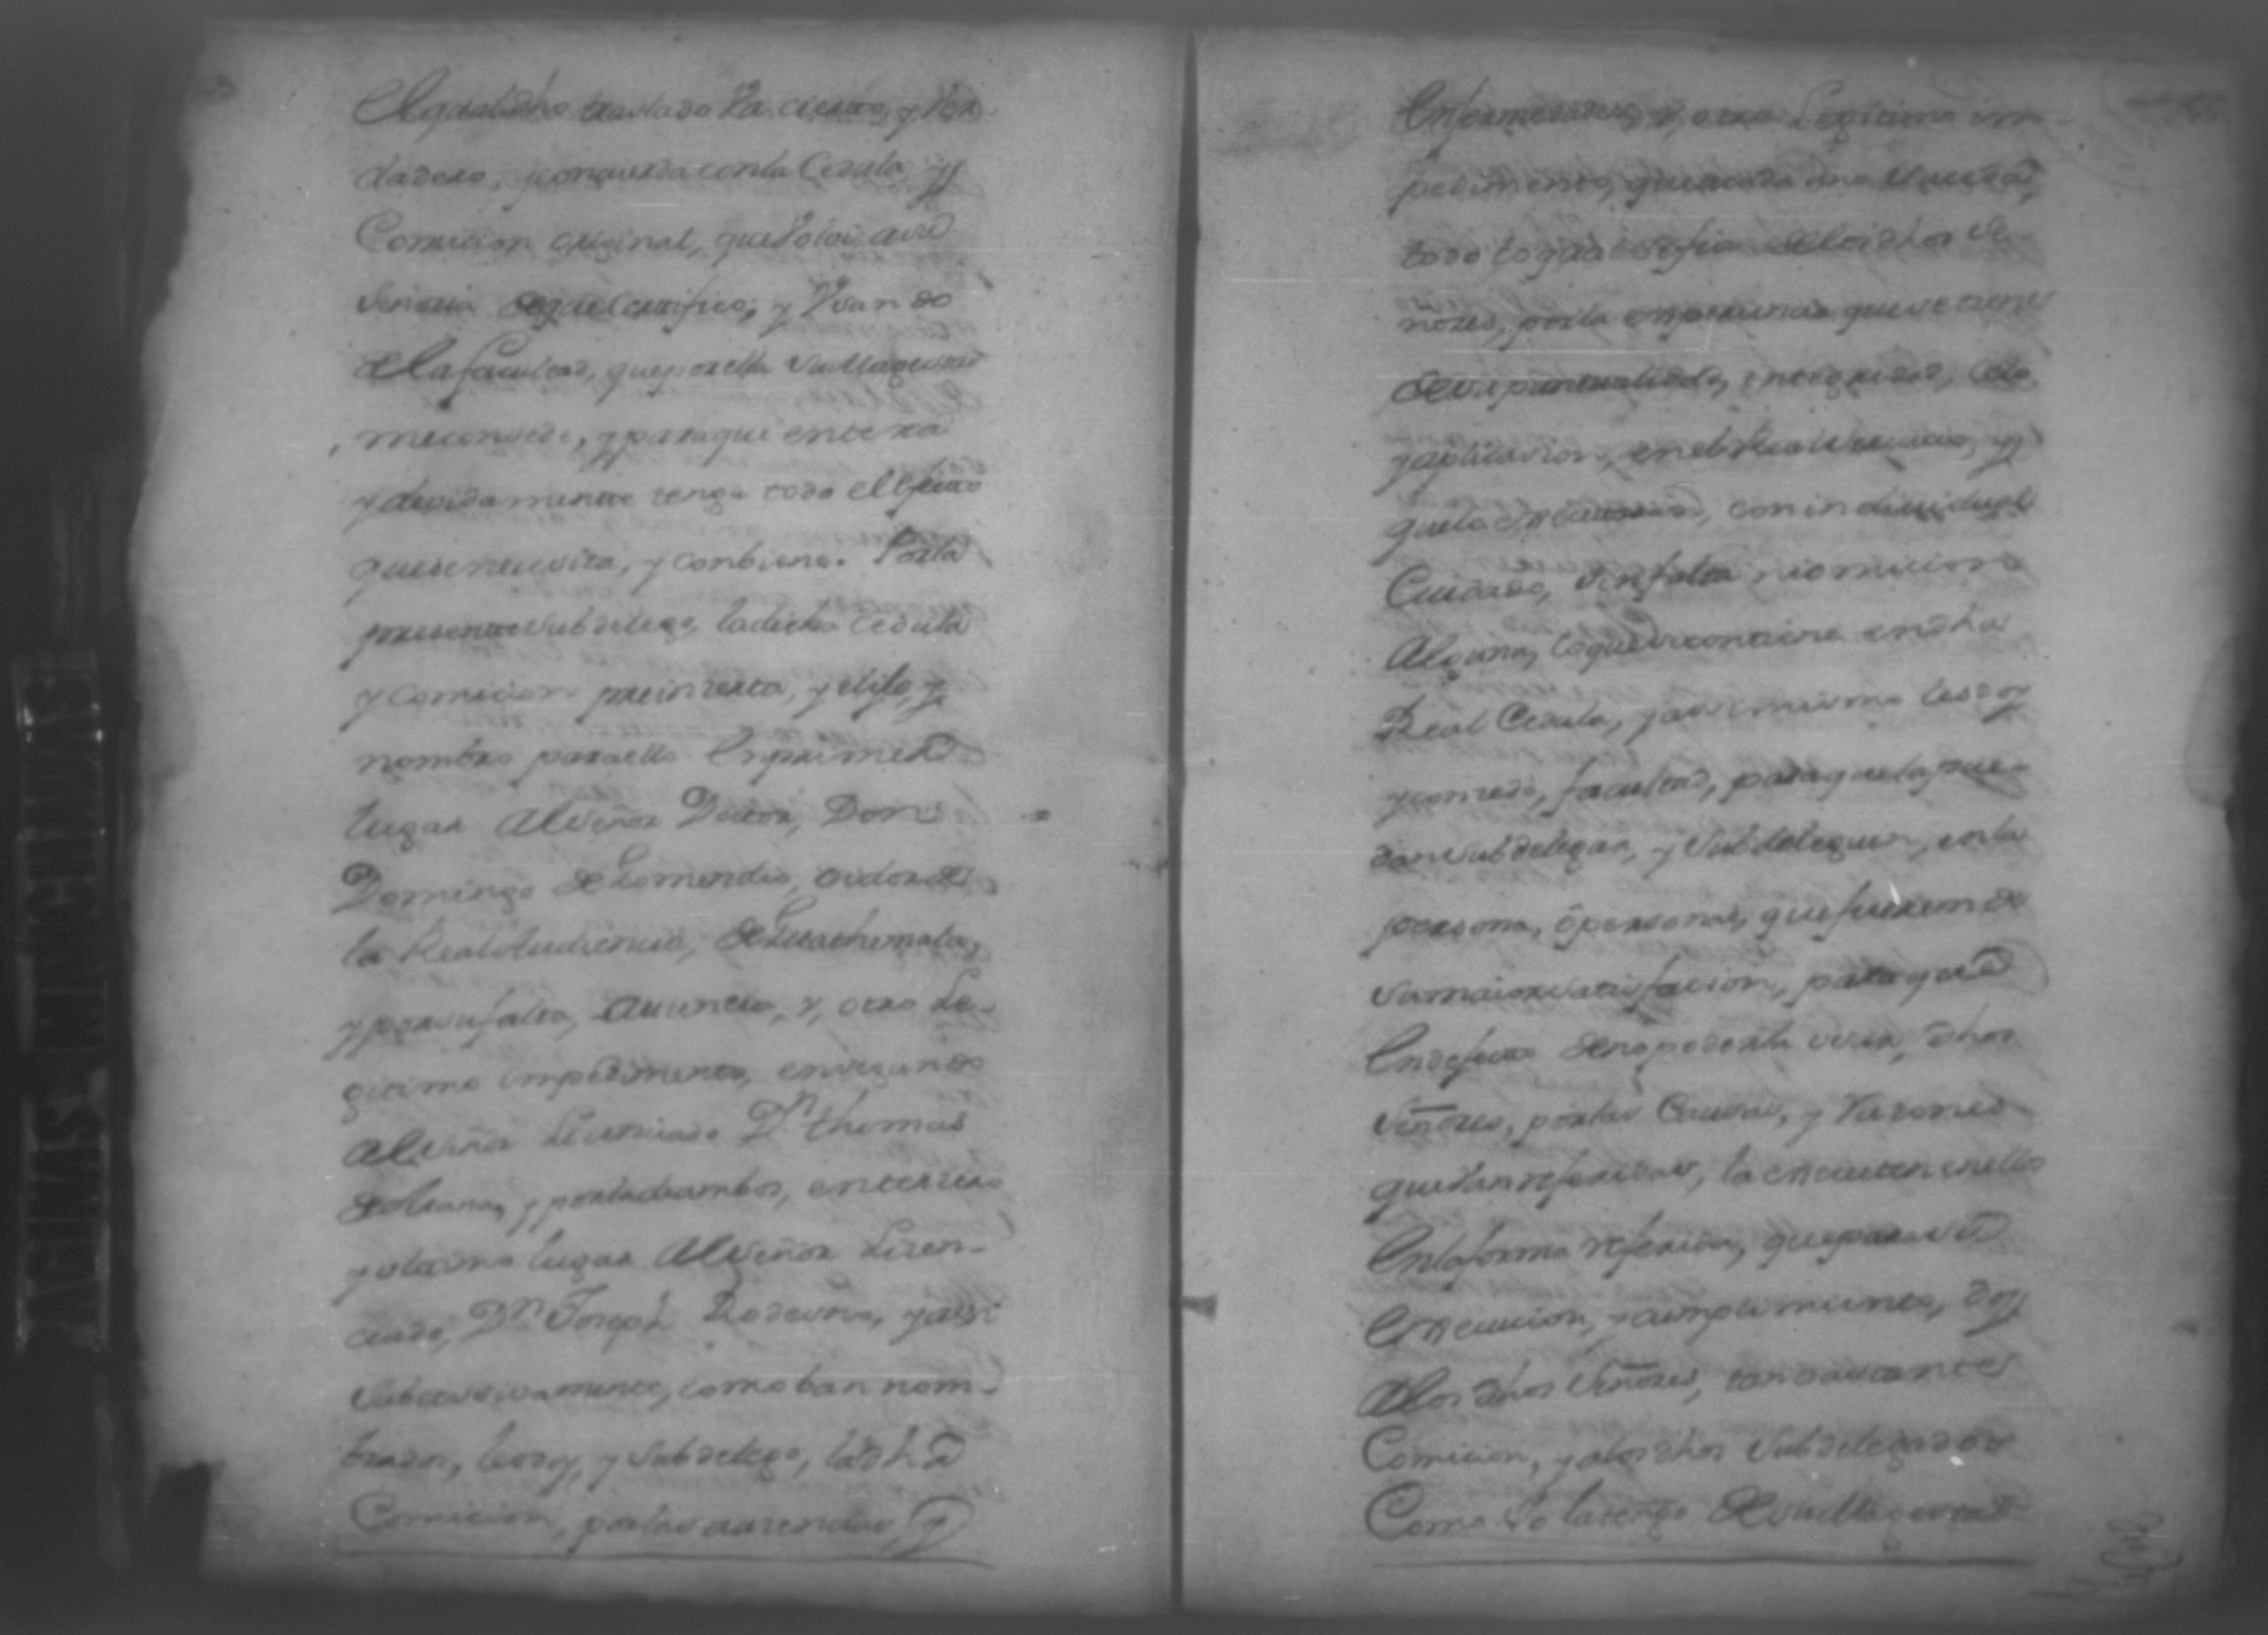 El qual dho traslado Va cierto, y Ver
dadero, y concuerda con la Cedula y
Comicion original, que Volvi a su
Senoria de que Certifico, y Vsando
de la facultad, que por ella su Magestad
me consede, y para que entera
y devidamente tenga todo el efecto
que se necesita, y combiene. Por la
presente subdelego, la dicha Cedula
y Comicion preinserta, y elijo, y
nombro para ello En primer
lugar al señor Doctor, Don
Domingo de Lomendio, oidor de
la Real Audiencia, de Guathemala,
y por su falta, ausencia, y, otro Le-
gitimo impedimento, en segundo
al señor Licenciado Dn. thomas
de Arana, y por la de ambos, en tercero
y ultimo lugar al señor Licen-
ciado, Dn Joseph Rodesno, y assi
subcessivamente, como ban nom-
brados, les doy, y Subdelego, la dha
Comicion, por las ausencias, y
Enfermedades, y, otro Legitimo im-
pedimento, que a cada uno suceda,
todo lo qual de los dhos se
ñores, por la experiencia que se tiene
de su puntualidad, integridad, Celo
y aplicacion, en el Real servicio, y
que la executaran, con individual
Cuidado, sin falta ni omicion
Alguna, lo que se contiene en dha
Real Cedula, y assi mismo les doy
y consedo, facultad, para que la pue-
dan subdelegar, y subdeleguen, en la
persona, ò personas, que fueren de
su maior satisfacion, para que
En defecto de no poderla usar, dhos
señores, por las Causas, y Razones
que Van referidas, la executen en ellos
En la forma referida, que para su
Execucion, y cumplimiento, doy
A los dhos señores, tan bastante
Comicion, y a los dhos Subdelegados
Como Yo la tengo de su Magestad